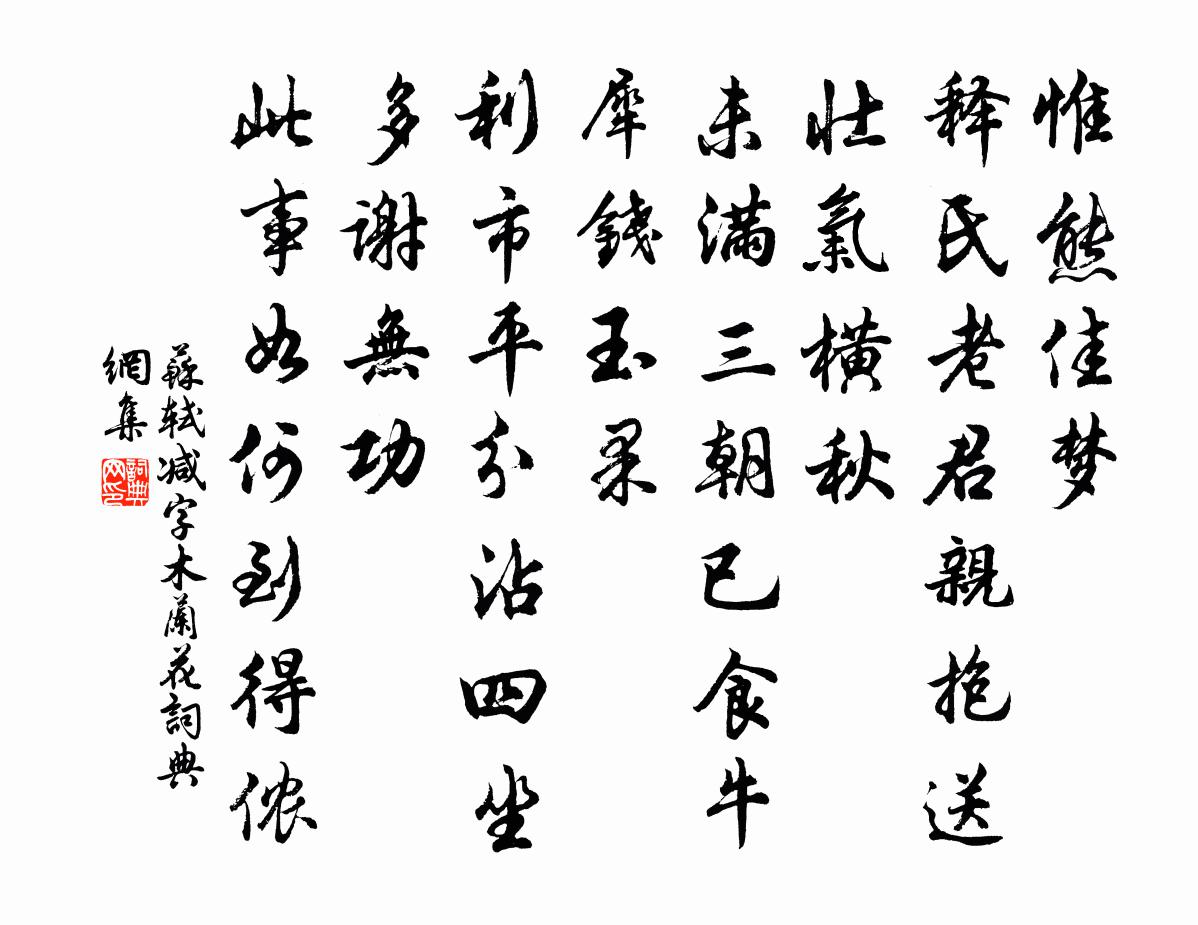 惟熊佳梦
释氏老君親抱送
壯氣横秋
未滿三朝已食牛
犀錢玉果
利市平分沾四坐
多謝無功
此事如何到得侬
蘇軾减字木蘭花詞典
網集
詞典
网印